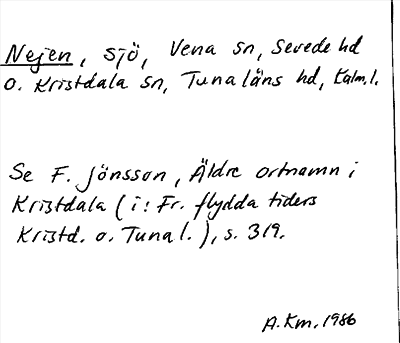 Nejen, sjö, Vena sn, Sevede hd
o. Kristdala sn, Tunaläns hd, Kalm.l.
Se F. Jönsson, Äldre ortnamn i
Kristdala (i: Fr. flydda tiders
Kristd. o. Tunal.), s. 319.
A.Km. 1986